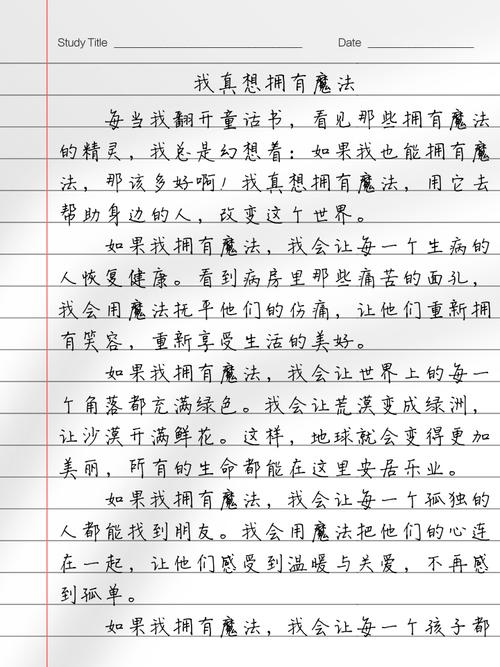 Study Title Date
我真想拥有魔法
每当我翻开童话书，看见那些拥有魔法
的精灵，我总是幻想着：如果我也能拥有魔
法，那该多好啊！我真想拥有魔法，用它去
帮助身边的人，改变这个世界。
如果我拥有魔法，我会让每一个生病的
人恢复健康。看到病房里那些痛苦的面孔，
我会用魔法抚平他们的伤痛，让他们重新拥
有笑容，重新享受生活的美好。
如果我拥有魔法，我会让世界上的每一
个角落都充满绿色。我会让荒漠变成绿洲，
让沙漠开满鲜花。这样，地球就会变得更加
美丽，所有的生命都能在这里安居乐业。
如果我拥有魔法，我会让每一个孤独的
人都能找到朋友。我会用魔法把他们的心连
在一起，让他们感受到温暖与关爱，不再感
到孤单。
如果我拥有魔法，我会让每一个孩子都